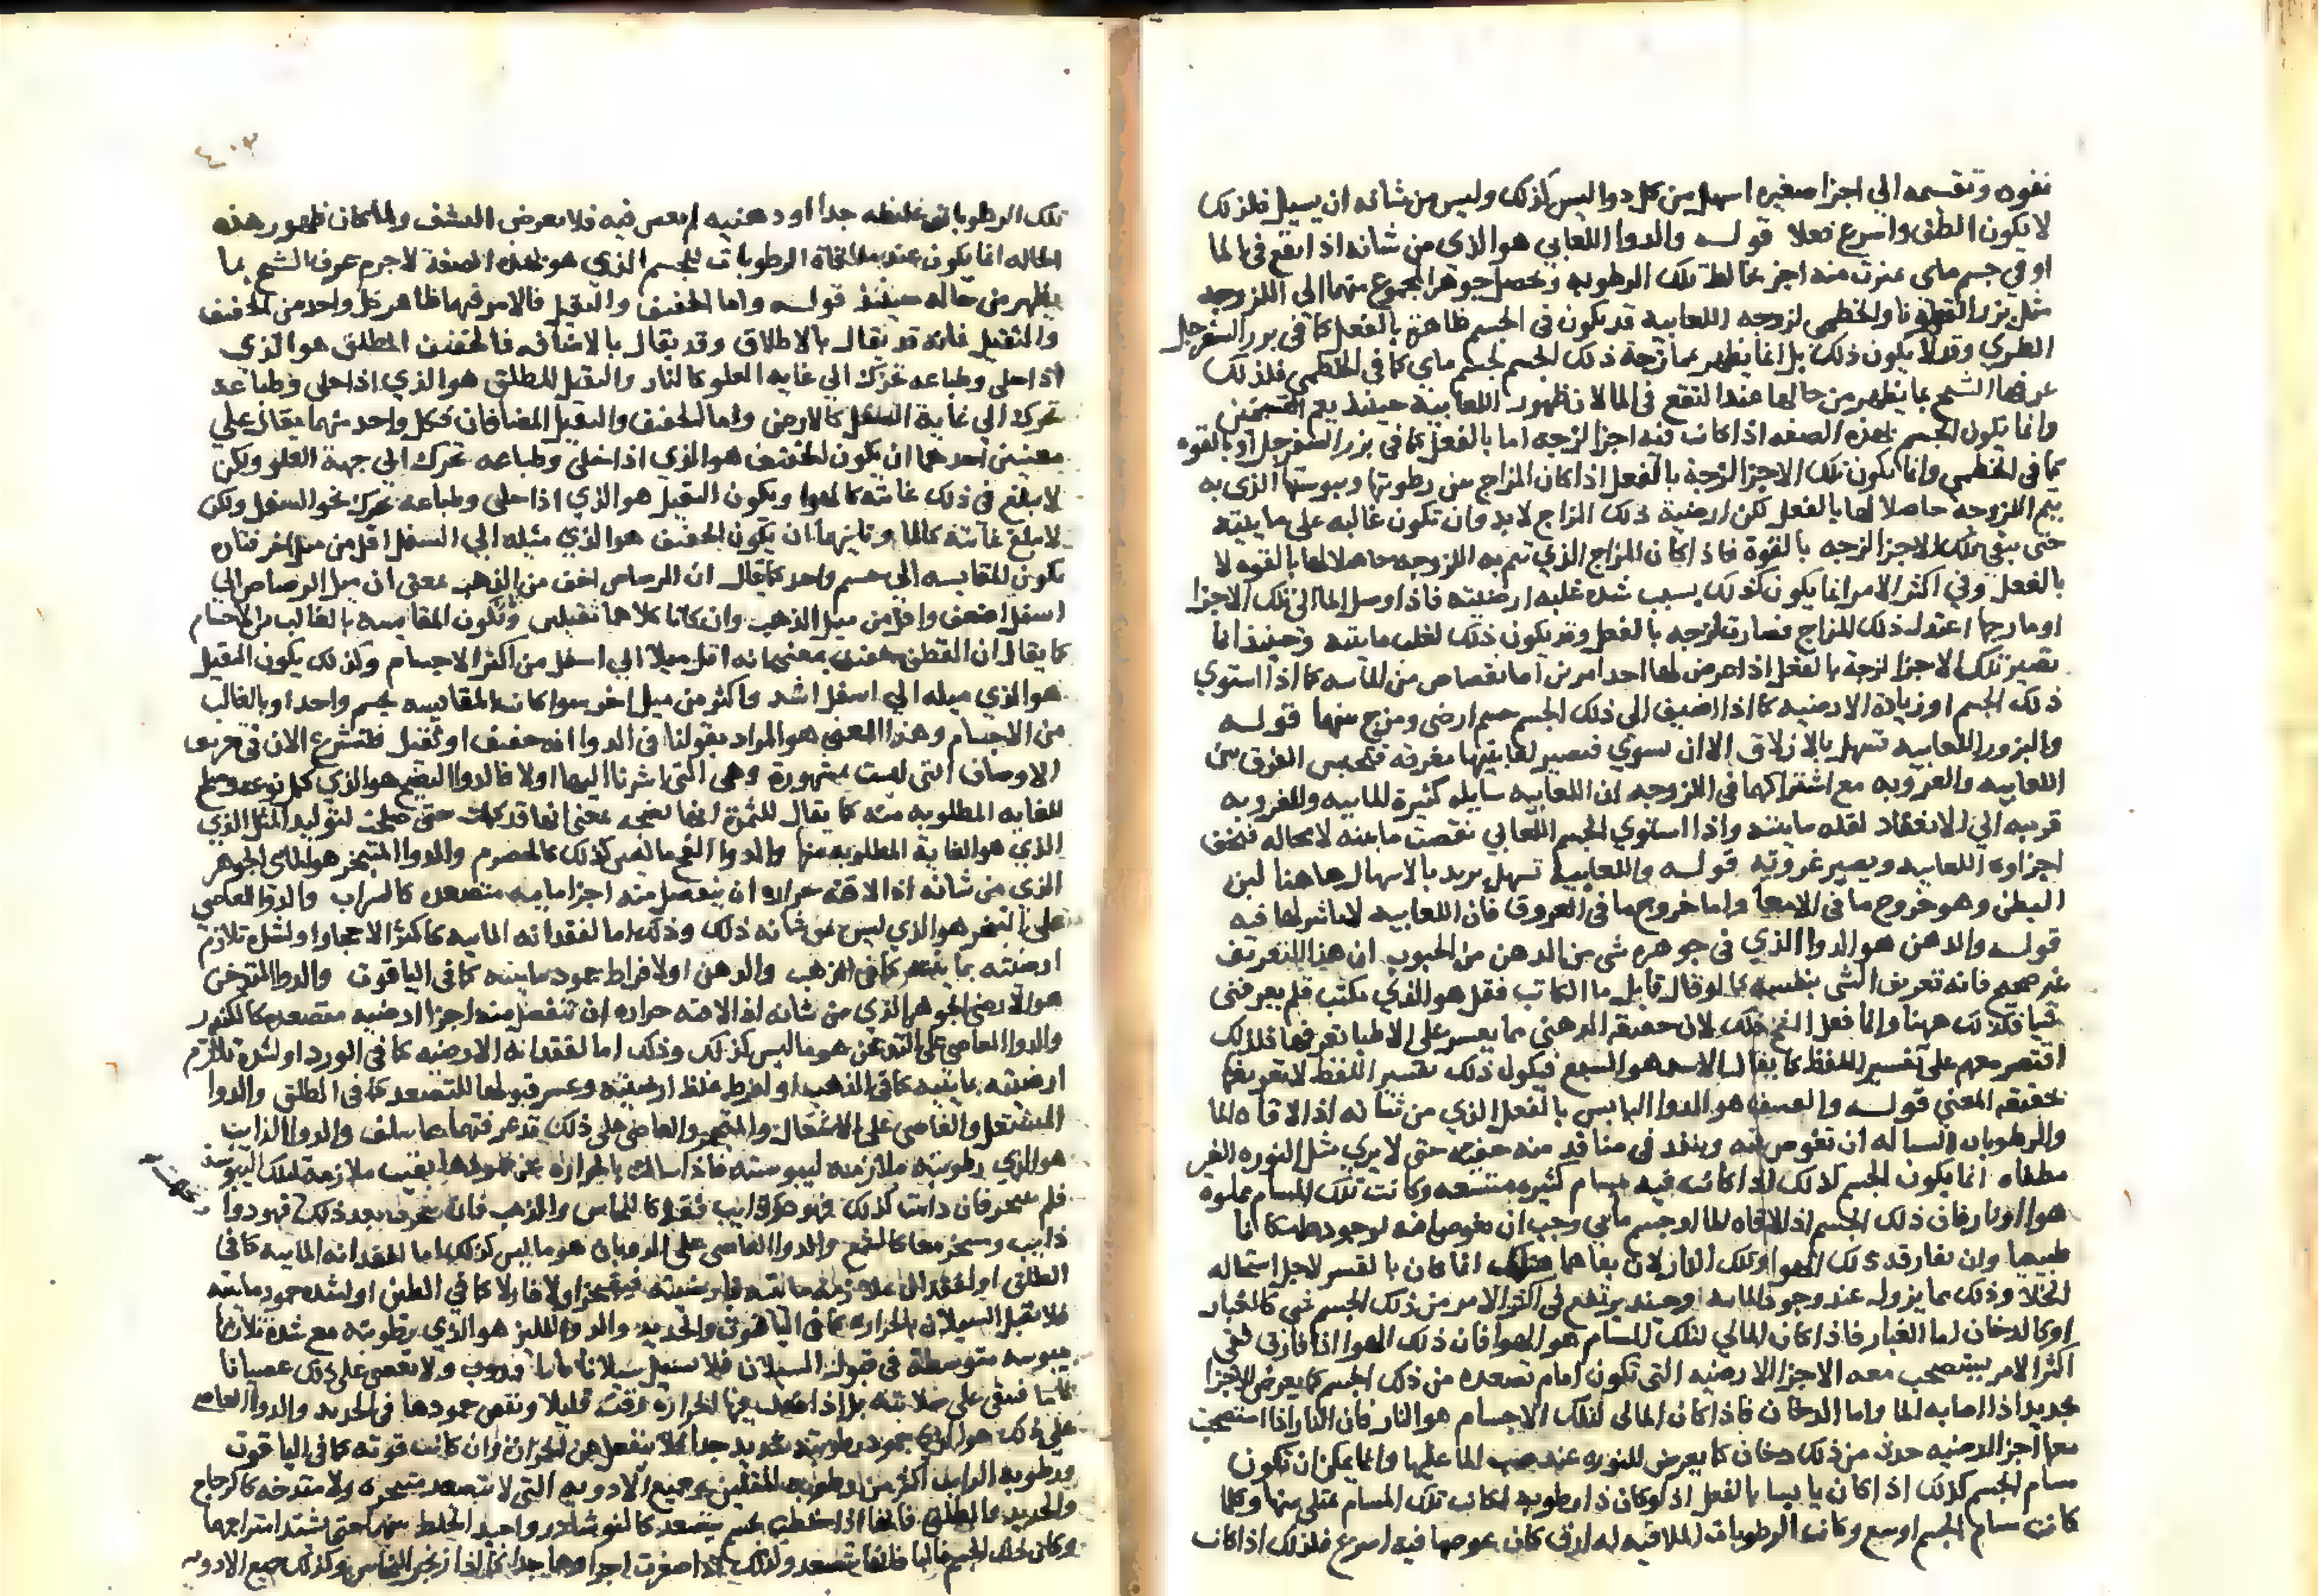 نفوه وتقسمه الي اجزا صغيره اسهل من كل دوا ليس كذلك وليس من شانه ان يسيل فلذلك
لا يكون الطف واسرع فعلا قوله والدوا اللعابي هو الذي من شانه اذا انقع في الما
او في جسم ماى تميزت منه اجزا تخالط تلك الرطوبه ويحصل جوهر المجموع منهما الي اللزوجه
مثل بزر القطونا والخطمي لزوجه اللعابيه قد يكون في الجسم ظاهرة بالفعل كما في بزر السفرجل
الطري وقد لا يكون ذلك بل انما يظهر بممازجة ذلك الجسم لجسم ماى كما في الخطمي فلذلك
عرفها الشيخ بما يظهر من حالها عند النقع في الما لان ظهور اللعابية حينئذ يعم القسمين
وانما يكون الجسم بهذه الصفه اذا كانت فيه اجزا لزجه اما بالفعل كما في بزر السفرجل او بالقوه
كما في الخطمي وانما تكون تلك الاجزا لزجة بالفعل اذا كان المزاج بين رطوبتها ويبوستها الذي به
يتم اللزوجه حاصلا لها بالفعل لكن ارضية ذلك المزاج لابد وان تكون غالبه على مائيته
حتى يبقى تلك الاجزا لزجه بالقوة فاذا كان المزاج الذي تتم به اللزوجه حاصلا لها بالقوه لا
بالفعل وفي اكثر الامر انما يكون كذلك بسبب شده غلبه ارضيته فاذا وصل الما الي تلك الاجزا
او مازجها اعتدل ذلك المزاج فصارت لزجه بالفعل وقد يكون ذلك لغلبه مائيته وحينئذ انما
تصير تلك الاجزا لزجة بالفعل اذا عرض لها احد امرين اما نقصاص من المائيه كما اذا استوي
ذلك الجسم او زيادة الارضيه كما اذا اضيف الى ذلك الجسم جسم ارضي ومزج بينهما قوله
والبزور اللعابيه تسهل بالازلاق الا ان تسوي فتصير لعابيتها مغريه فتحبس الفرق بين
اللعابيه والغرويه مع اشتراكهما في اللزوجه ان اللعابيه سايله كثيرة المايه والغرويه
قريبه الي الانعقاد لقله مائيته واذا استوي الجسم اللعابي نقصت مائيته لا محاله فتجف
اجزاوه اللعابيه ويصير غرويه قوله واللعابية تسهل يريد بالاسهال هاهنا لين
البطن وهو خروج ما في الامعا واما خروج ما في العروق فان اللعابيه لا تاثير لها فيه
قوله والدهن هو الدوا الذي في جوهره شي من الدهن من الحبوب ان هذا التعريف
غير صحيح فانه تعريف الشي بنفسه كما لو قال قايل ما الكاتب فقيل هو الذي يكتب فلم يعرفني
شيا فكذلك ههنا وانما فعل الشيخ ذلك لان حقيقه الدهني مما يعسر على الاطبا تعرفها فلذلك
اقتصر معهم على تفسير اللفظ كما يقال الاسد هو السبع فيكون ذلك تفسير اللفظ لا تعريفا
لحقيقه المعني قوله والمنشف هو الدوا اليابس بالفعل الذي من شانه اذا لاقاه الما
والرطوبات السياله ان تغوص فيه وينفذ في منافذ منه خفيه حتى لا يري مثل النوره الغير
مطفاه انما يكون الجسم كذلك اذا كانت فيه مسام كثيره متسعه وكانت تلك المسام مملوه
هوا او نار فان ذلك الجسم اذا لاقاه الما او جسم مائي وجب ان يغوص فيه
طبيعيا ولن يفارقه ذلك الهوا وتلك النار لان بقاهما هنالك انما كان بالقسر لاجل استحاله
الخلا وذلك مما يزول عند وجود الما وحينئذ يرتفع في اكثر الامر من ذلك الجسم شي كالغبار
او كالدخان اما الغبار فاذا كان المالي لتلك المسام هو الهوا فان ذلك الهوا اذا فارق ففي
اكثر الامر يستصحب معه الاجزا الارضيه التي تكون امام تصعده من ذلك الجسم كما يعرض للاجزا
اذا اصابه الما واما الدخان فاذا كان المالي لتلك الاجسام هو النار فان النار اذا استصحبت
معها اجزا ارضيه حدث من ذلك دخان كما يعرض للنوره عند صب الما عليها وانما يمكن ان تكون
مسام الجسم كذلك اذا كان يابسا بالفعل اذ لو كان ذا رطوبه لكانت تلك المسام تمتلي منها وكلما
كانت مسام الجسم اوسع وكانت الرطوبات الملاقيه له ارق كان غوصها فيه اسرع فلذلك اذا كانت
٤٠٣
تلك الرطوبات غليظه جدا او دهنيه لم تغص فيه فلا يعرض النشف ولما كان ظهور هذه
الحاله انما يكون عند ملاقاة الرطوبات للجسم الذي هو بهذه الصفة لا جرم عرف الشيخ بما
يظهر من حاله حينئذ قوله واما الخفيف والثقيل فالامر فيهما ظاهر كل واحد من الخفيف
والثقيل فانه قد يقال بالاطلاق وقد يقال بالاضافه فالخفيف المطلق هو الذي
اذا خلى وطباعه تحرك الي غايه العلو كالنار والثقيل المطلق هو الذي اذا خلى وطباعه
تحرك الي غاية السفل كالارض واما الخفيف والثقيل المضافان فكل واحد منهما يقال على
معنيين احدهما ان يكون الخفيف هو الذي اذا خلى وطباعه تحرك الي جهة العلو ولكن
لا يبلغ في ذلك غايته كالهوا ويكون الثقيل هو الذي اذا خلى وطباعه تحرك نحو السفل ولكن
لا يبلغ غايته كالما وثانيهما ان يكون الخفيف هو الذي ميله الي السفل اقل من ميل اخر فتاره
تكون المقايسه الي جسم واحد كما يقال ان الرصاص اخف من الذهب بمعنى ان ميل الرصاص الي
اسفل اضعف واقل من ميل الذهب وان كانا كلاهما ثقيلين وتكون المقايسه بالغالب من الاجسام
كما يقال ان القطن خفيف بمعنى انه اقل ميلا الي اسفل من اكثر الاجسام وكذلك يكون الثقيل
هو الذي ميله الي اسفل اشد واكثر من ميل اخر سوا كانت المقايسه لجسم واحد او بالغالب
من الاجسام وهذا المعنى هو المراد بقولنا في الدوا انه خفيف او ثقيل فلنشرع الان في تعريف
الاوصاف التي ليست مشهورة وهي التي اشرنا اليها اولا فالدوا النضيج هو الذي كمل نوعه وصلح
للغايه المطلوبه منه كما يقال للثمرة انها نضيجه بمعنى انها قد كملت حتى صلحت لتوليد المثل الذي
الذي هو الغاية المطلوبه منها والدوا الفج ما ليس كذلك كالحصرم والدوا المتبخر هو المائى الجوهر
الذي من شانه اذا لاقته حراره ان ينفصل منه اجزا مايه متصعده كالشراب والدوا العاصي
على التبخر هو الذي ليس من شانه ذلك وذلك اما لفقدانه المائيه كاكثر الاحجار او لشده تلازم
ارضيته بمائيته كما في الذهب والدهن او لافراط جمود مائيته كما في الياقوت والدوا المتدخن
هو الارضي الجوهر الذي من شانه اذا لاقته حراره ان تنفصل منه اجزا ارضيه متصعده كالكندر
والدوا العاصي على التدخن هو ما ليس كذلك وذلك اما لفقدانه الارضيه كما في الورد او لشدة تلازم
ارضيته بمائيته كما في الذهب او لفرط غلظ ارضيته وعسر قبولها للتصعد كما في الطلق والدوا
المشتعل والعاصي على الاشتعال والمتجمر والعاصي على ذلك قد عرفتهما مما سلف والدوا الذايب
هو الذي رطوبته ملازمه ليبوسته فاذا سالت بالحراره عن جمودها بقيت ملازمة لتلك اليبوسه
فلم تتبخر فان دامت كذلك فهو ذايب فقط كالنحاس والذهب فان تبخرت بعد ذلك فهو دوا
ذايب ومتبخر معا كالشمع والدوا العاصي على الذوبان هو ما ليس كذلك اما لفقدانه المائيه كما في
الطلق او لفقدان ملازمة مائيته لارضيته فيتبخر اولا فاولا كما في الطين او لشده جمود مائيته
فلا تقبل السيلان بالحراره كما في الياقوت والحديد والدوا اللين هو الذي رطوبته مع شدة تلازمها
يبوسه متوسطة في قبول السيلان فلا تسيل سيلانا تاما فتذوب ولا تعصى على ذلك عصيانا
تاما فتبقى على صلابته بل اذا فعلت فيها الحرارة رققت قليلا ونقص جمودها كما في الحديد والدوا العاصي
على ذلك هو الذي جمود رطوبته شديد جدا فلا ينفعل عن النيران وان كانت قويه كما في الياقوت
ورطوبه الذايب اكثر من رطوبه المتلين وجميع الادويه التي لا تتصعد متبخره ولا متدخنه كالزجاج
والحديد والطلق فانها اذا خلطت بجسم يتصعد كالنوشادر واجيد الخلط بينهما حتى يشتد امتزاجهما
وكان ذلك الجسم غالبا فانها تتصعد وكذلك اذا صغرت اجزاوها جدا كما في زنجار النحاس وكذلك جميع الادويه